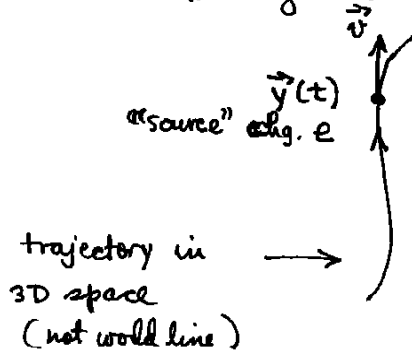 v⃗
y⃗(t)
"source" chg. e
trajectory in
3D space
(not world line)